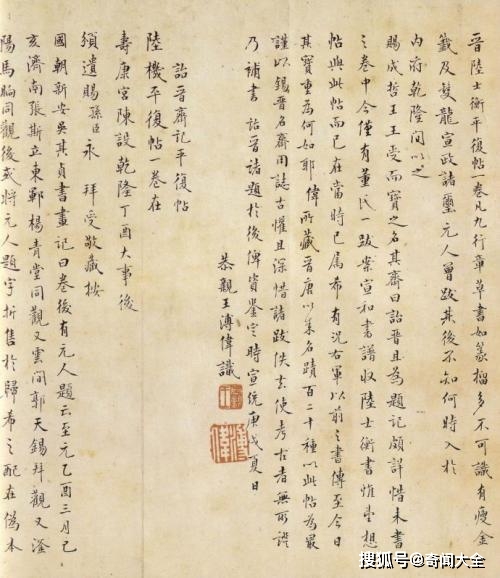 晉陸士衡平復帖一卷凡九行章草書如篆籀多不可識有瘦金
籤及雙龍宣政諸璽元人曾跋其後不知何時入於
內府乾隆間以之
賜成哲王王受而寶之名其齋曰詒晉且為題記頗詳惜未書
之卷中今僅有董氏一跋案宣和書譜收陸士衡書惟望想
帖與此帖而已在當時已屬希有況右軍以前之書傳至今日
其寶重為何如耶偉所藏晉唐以來名蹟百二十種以此帖為最
謹以錫晉名齋用誌古懽且深惜諸跋佚去使考古者無所證
乃補書詒晉諸題於後俾資鑒定時宣統庚戌夏日
恭親王溥偉識
詒晉齋記平復帖
陸機平復帖一卷在
壽康宮陳設乾隆丁酉大事後
頒遺賜孫臣永 拜受敬藏按
國朝新安吳其貞書畫記曰卷後有元人題云至元乙酉三月己
亥濟南張斯立東鄆楊青堂同觀又雲間郭天錫拜觀又滏
陽馬昫同觀後或將元人題字折售於歸希之配在偽本
搜狐号@奇闻大全